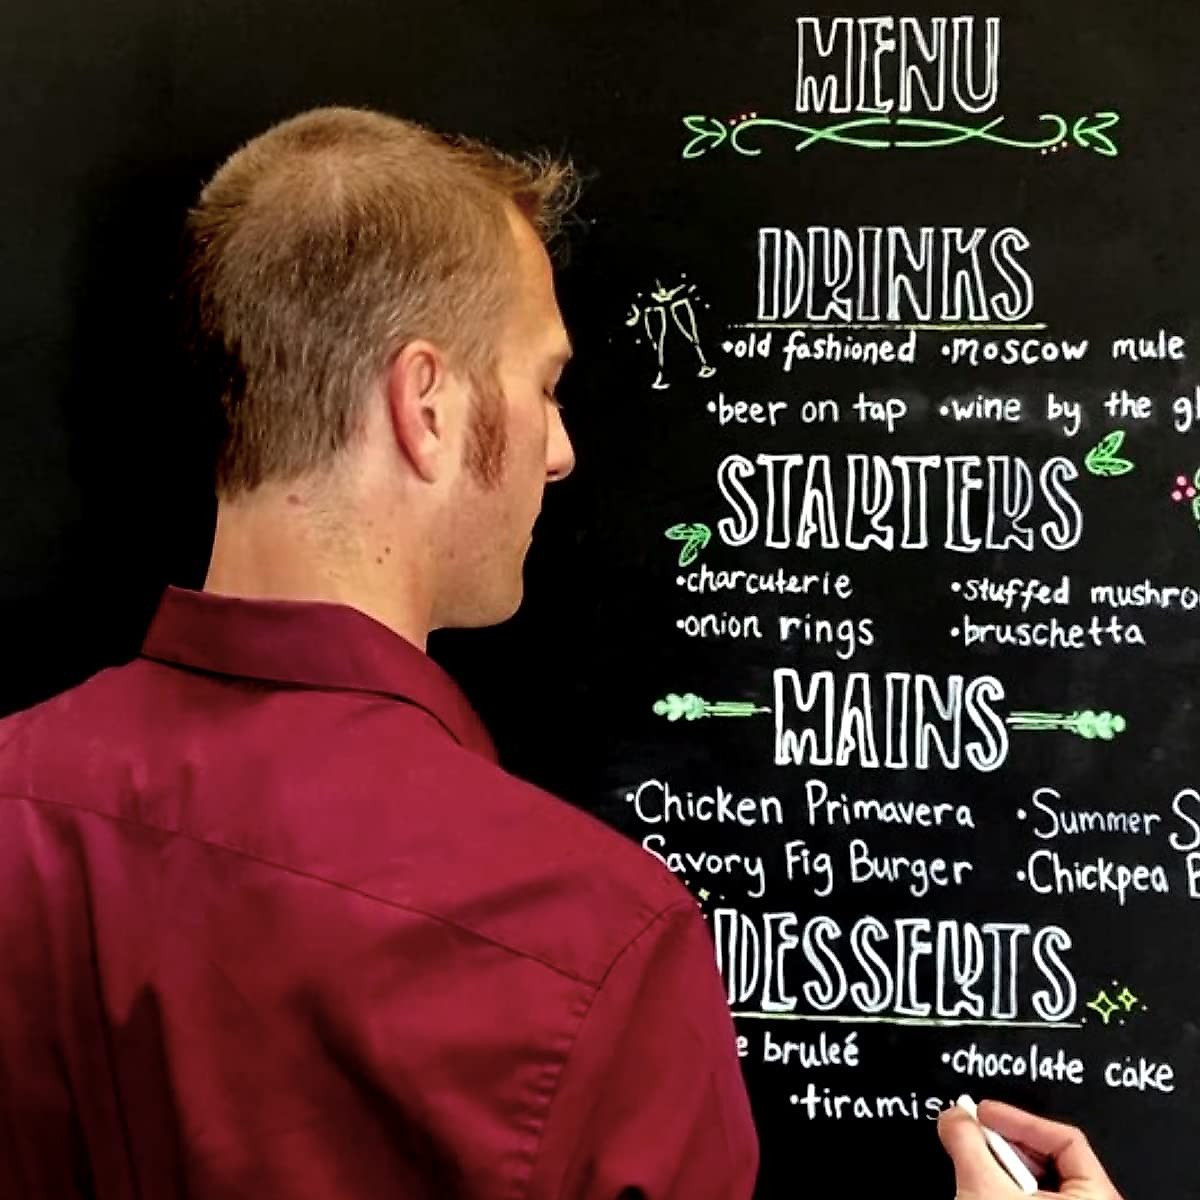 MENU
DRINKS
•old fashioned •moscow mule
•beer on tap •wine by the
STARTERS
•charcuterie •stuffed
•onion rings •bruschetta
MAINS
•Chicken Primavera •Summer
Savory Fig Burger •Chickpea
DESSERTS
bruleé •chocolate cake